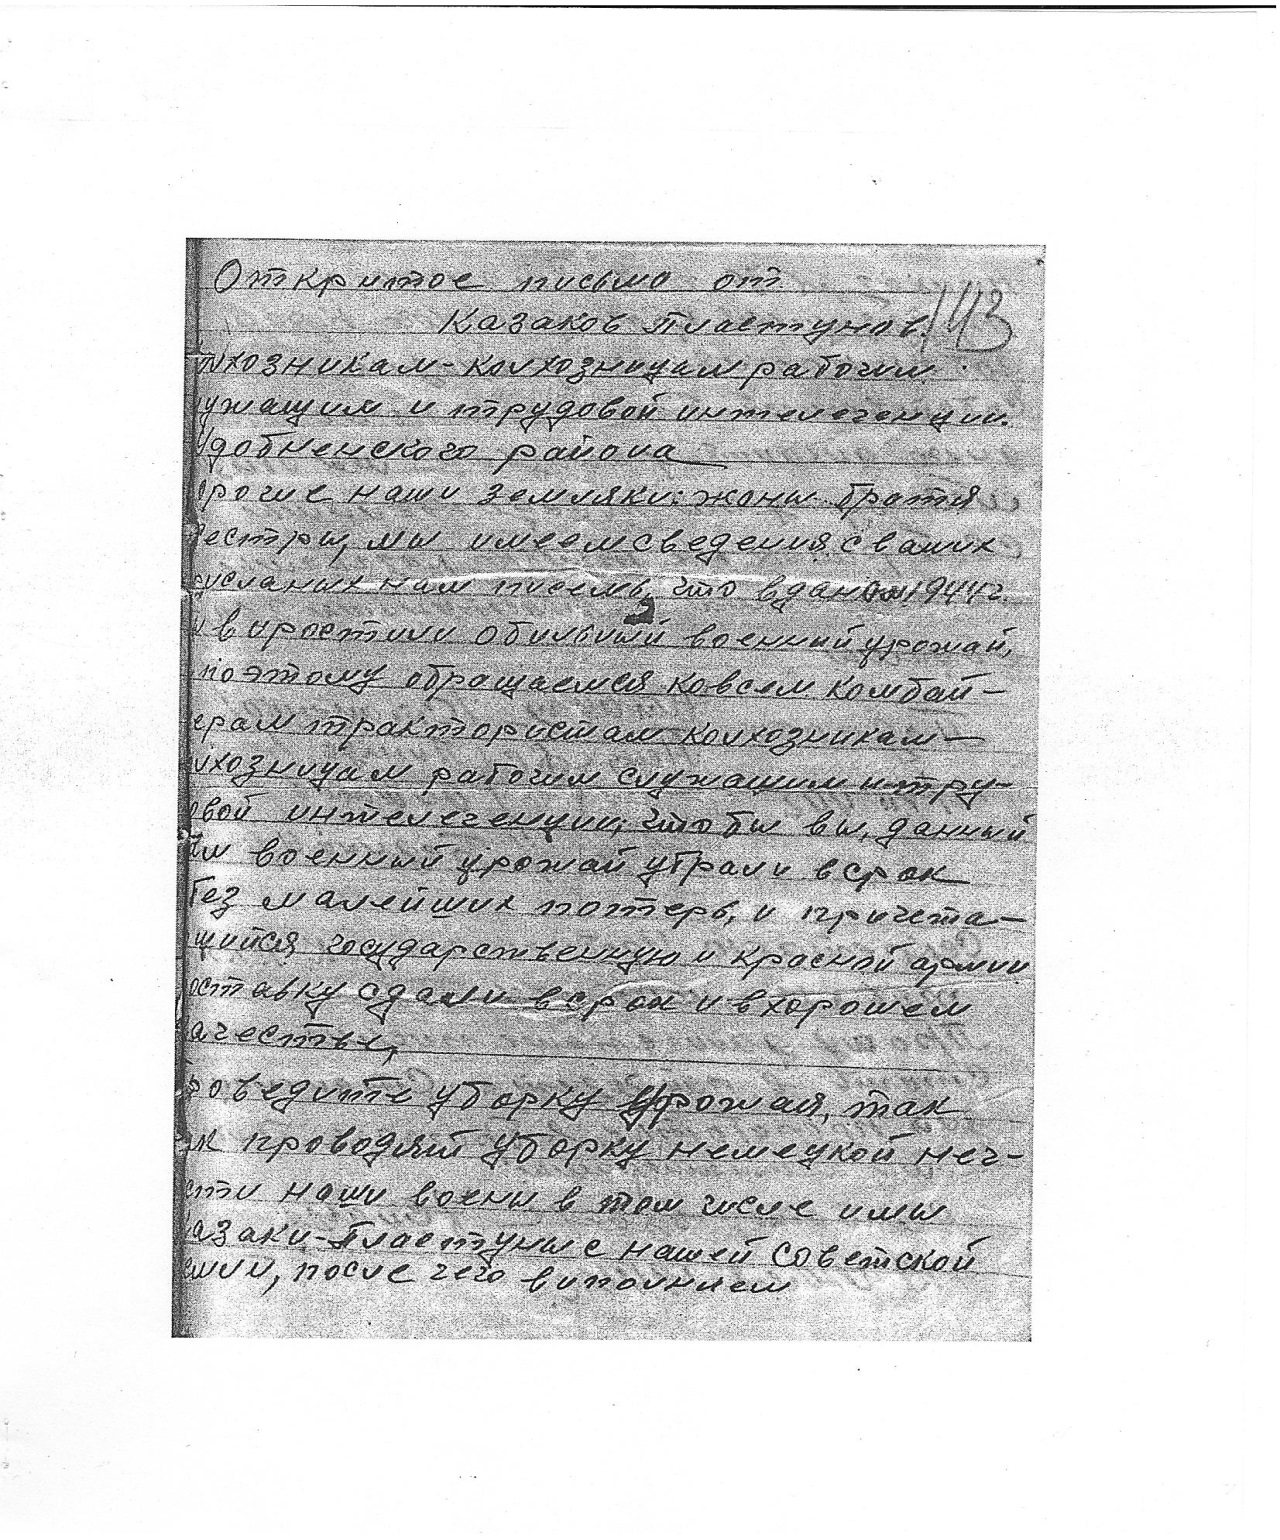 Откритое письмо от
Казаков Пластунов. 143
лхозникам-колхозницам рабочим
ужащим и трудовой интелегенции.
удобненского района
орогие наши земляки: жоны братя
сестры, мы имеем сведения с ваших
исланых нам писемь, что вданом 1944г.
ы выростили обильный военный урожай,
поэтому обращаемся ковсем комбай-
ерам трактористам колхозникам-
лхозницам рабочим служащим и тру-
овой интелегенции, чтобы вы, данный
ны военный урожай убрали всрок
без малейших потерь, и причета-
щийся государственную и красной армии
оставку сдали всрок и вхорошем
ачестве,
роведите уборку Урожая, так
ак проводят уборку немецкой неч-
сти наши воены в том числе имы
казаки-Пластуны с нашей Советской
емли, после чего виполнием